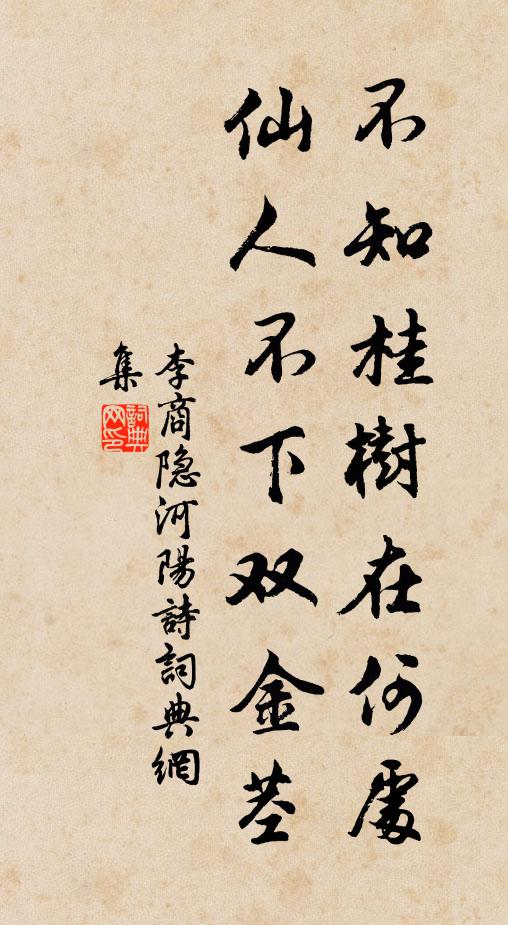 不知桂樹在何處
仙人不下双金茎
李商隐河陽詩詞典網
集
詞典
网印